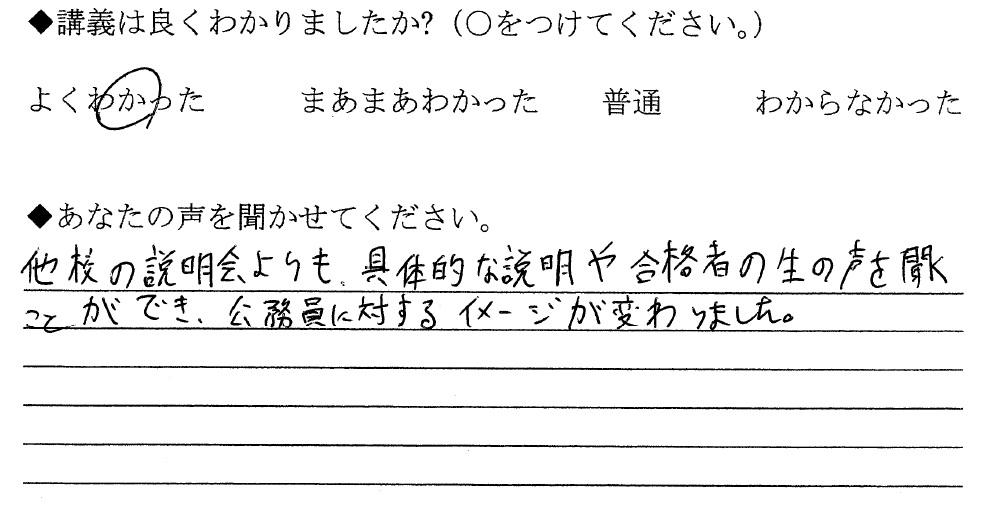 ◆講義は良くわかりましたか?（○をつけてください。）
よくわかった　まあまあわかった　普通　わからなかった
◆あなたの声を聞かせてください。
他校の説明会よりも、具体的な説明や合格者の生の声を聞く
ことができ、公務員に対するイメージが変わりました。